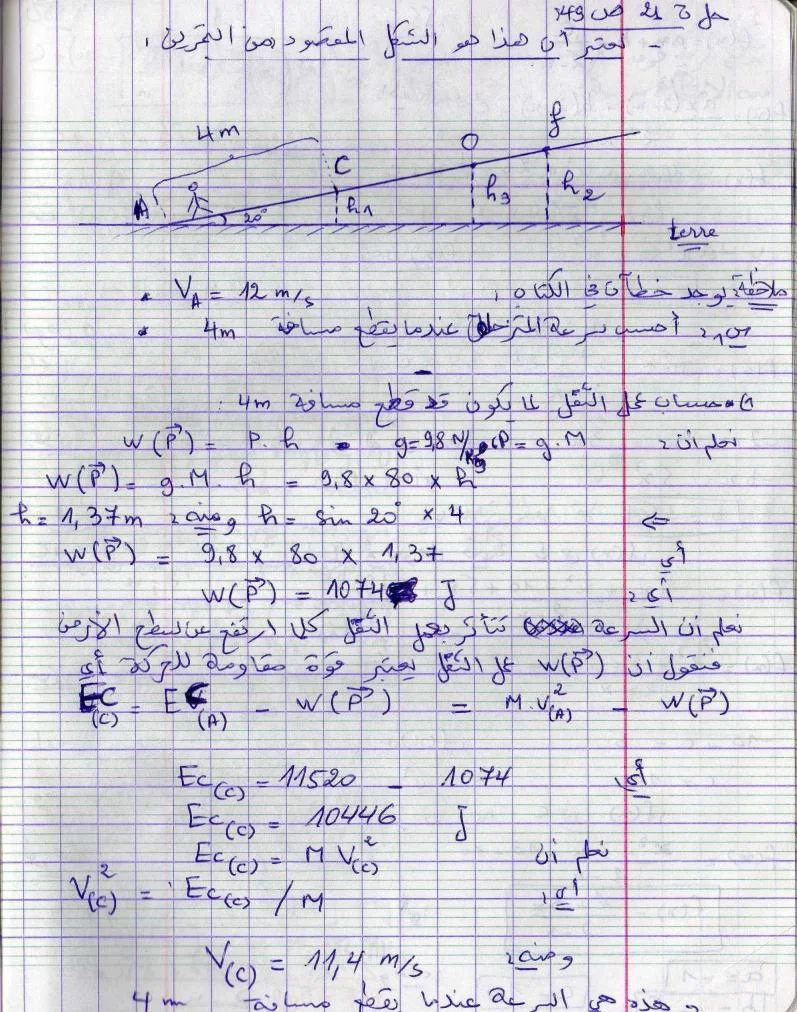 حل ت 21 ص 49
- نعتبر أن هذا هو الشكل المقصود من التمرين .
4m
A
20°
C
h1
O
h3
f
h2
terre
ملاحظة: يوجد خطآن في الكتاب ،
• VA = 12 m/s
• أحسب سرعة المتزحلق عندما يقطع مسافة 4m
1) حساب عمل الثقل لما يكون قد قطع مسافة 4m :
نعلم أن: W(P) = P. h • g=9,8 N/Kg ، P = g.M
W(P) = g.M. h = 9,8 × 80 × h
⇐ h = sin 20° × 4 ومنه: h = 1,37m
أي W(P) = 9,8 × 80 × 1,37
أي: W(P) = 1074 J
نعلم أن السرعة تتأثر بعمل الثقل كلما ارتفع عن سطح الأرض
فنقول أن W(P) عمل الثقل يعتبر قوة مقاومة للحركة أي
EC(C) = EC(A) - W(P) = M.V²(A) - W(P)
أي Ec(C) = 11520 - 1074
Ec(C) = 10446 J
نعلم أن Ec(C) = M V²(C)
أي: V²(C) = Ec(C) / M
ومنه: V(C) = 11,4 m/s
و هذه هي السرعة عندما يقطع مسافة 4 m